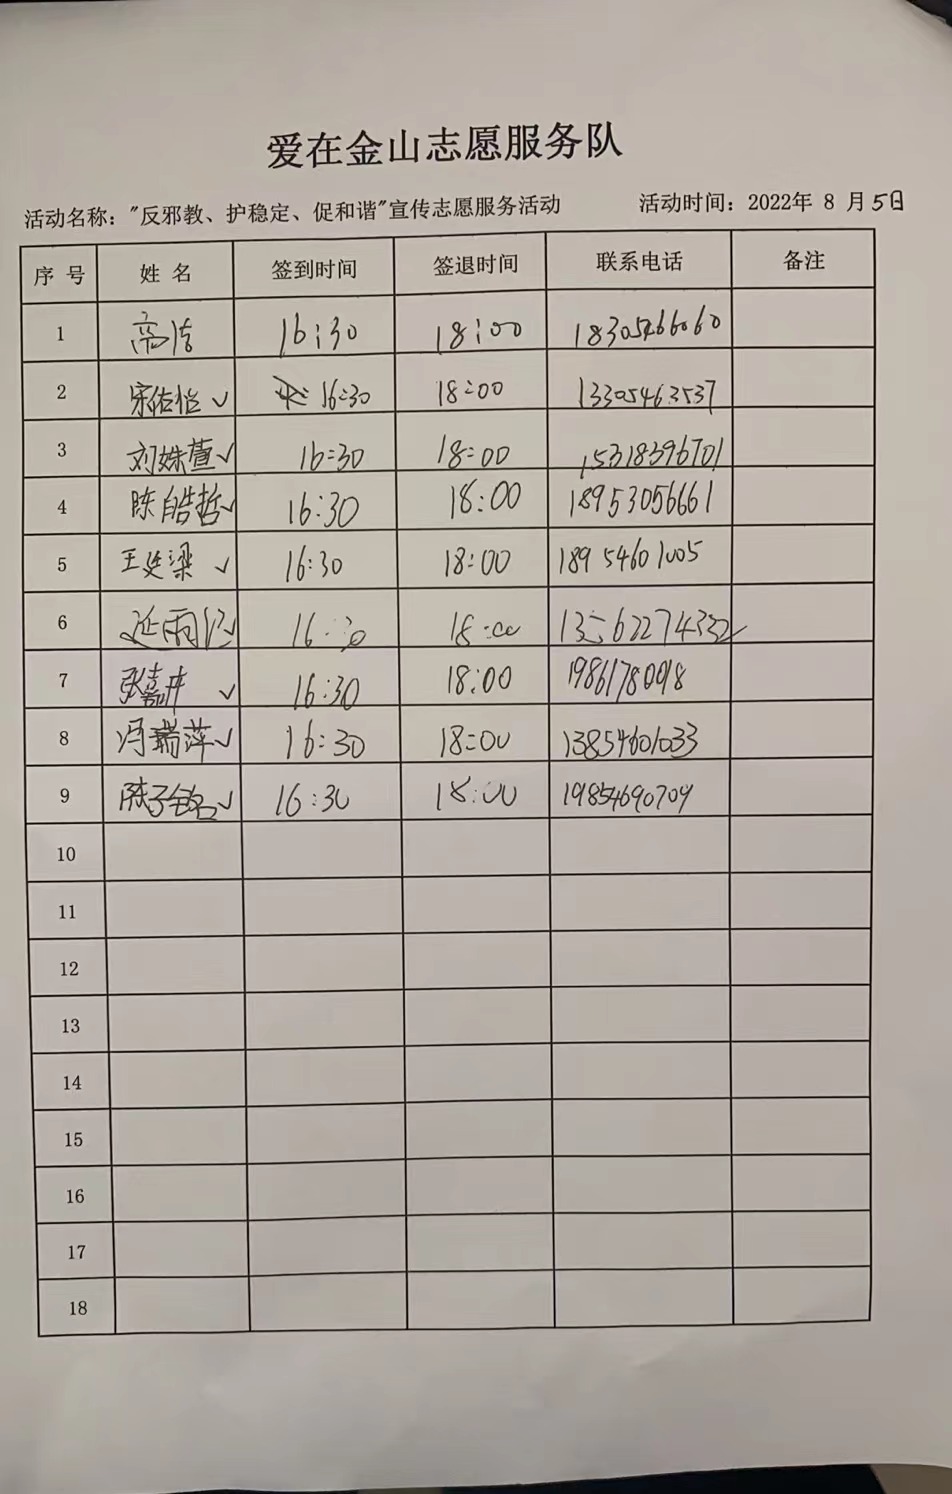 爱在金山志愿服务队
活动名称："反邪教、护稳定、促和谐"宣传志愿服务活动 活动时间：2022年 8 月 5日
序 号 姓 名 签到时间 签退时间 联系电话 备注
1 高洁 16:30 18:00 18305466060
2 宋佑怡 ✓ 16:30 18:00 13305463537
3 刘姝萱 ✓ 16:30 18:00 15318396701
4 陈皓哲 ✓ 16:30 18:00 18953056661
5 王廷梁 ✓ 16:30 18:00 18954601005
6 延雨 ✓ 16:30 18:00 13562274332
7 张嘉 ✓ 16:30 18:00
8 冯瑞萍 ✓ 16:30 18:00 13854601033
9 陈子铭 ✓ 16:30 18:00 19854690709
10
11
12
13
14
15
16
17
18